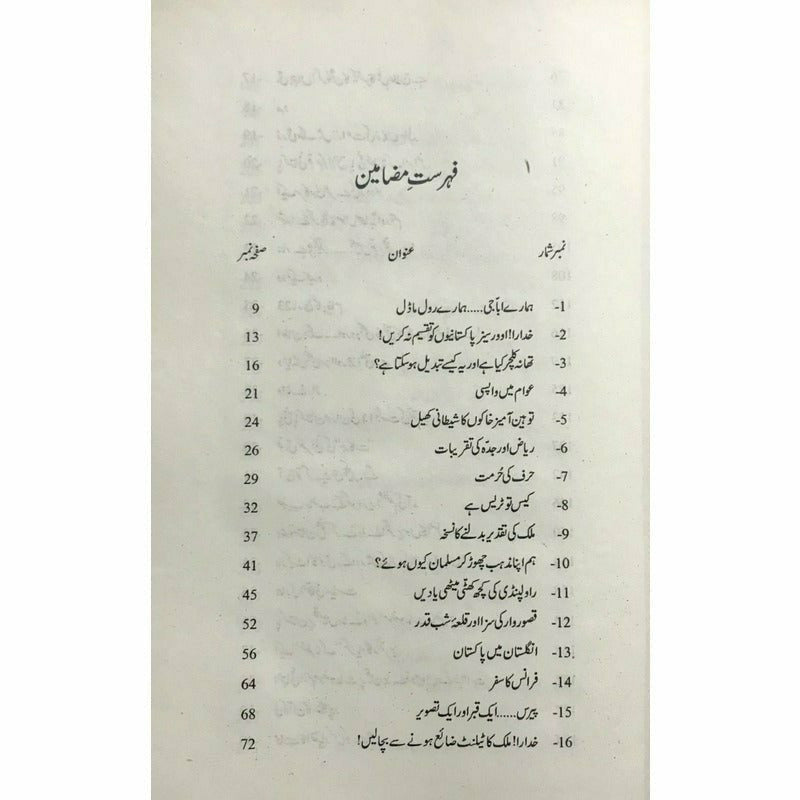 ۱
فہرستِ مضامین
نمبر شمار عنوان صفحہ نمبر
1- ہمارے اباّ جی.....ہمارے رول ماڈل 9
2- خدارا! اوورسیز پاکستانیوں کو تقسیم نہ کریں! 13
3- تھانہ کلچر کیا ہے اور یہ کیسے تبدیل ہوسکتا ہے؟ 16
4- عوام میں واپسی 21
5- توہین آمیز خاکوں کا شیطانی کھیل 24
6- ریاض اور جدّہ کی تقریبات 26
7- حرف کی حُرمت 29
8- کیس تو ٹریس ہے 32
9- ملک کی تقدیر بدلنے کا نسخہ 37
10- ہم اپنا مذہب چھوڑ کر مسلمان کیوں ہوئے؟ 41
11- راولپنڈی کی کچھ کھٹی میٹھی یادیں 45
12- قصوروار کی سزا اور قلعۂ شب قدر 52
13- انگلستان میں پاکستان 56
14- فرانس کا سفر 64
15- پیرس......ایک قبر اور ایک تصویر 68
16- خدارا! ملک کا ٹیلنٹ ضائع ہونے سے بچالیں! 72